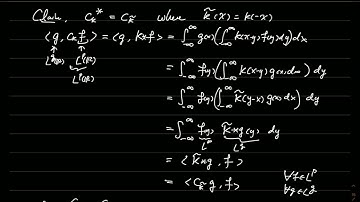 Claim, C_k^* = C_k̃ where k̃(x) = k(-x)
⟨g, C_k f⟩ = ⟨g, k*f⟩ = ∫_{-∞}^{∞} g(x) (∫_{-∞}^{∞} k(x-y) f(y) dy) dx
L^q(ℝ) L^p(ℝ)
= ∫_{-∞}^{∞} f(y) (∫_{-∞}^{∞} k(x-y) g(x) dx) dy
= ∫_{-∞}^{∞} f(y) (∫_{-∞}^{∞} k̃(y-x) g(x) dx) dy
= ∫_{-∞}^{∞} f(y) k̃*g(y) dy
L^p L^q
= ⟨k̃*g, f⟩
= ⟨C_k̃ g, f⟩ ∀f∈L^p
∀g∈L^q